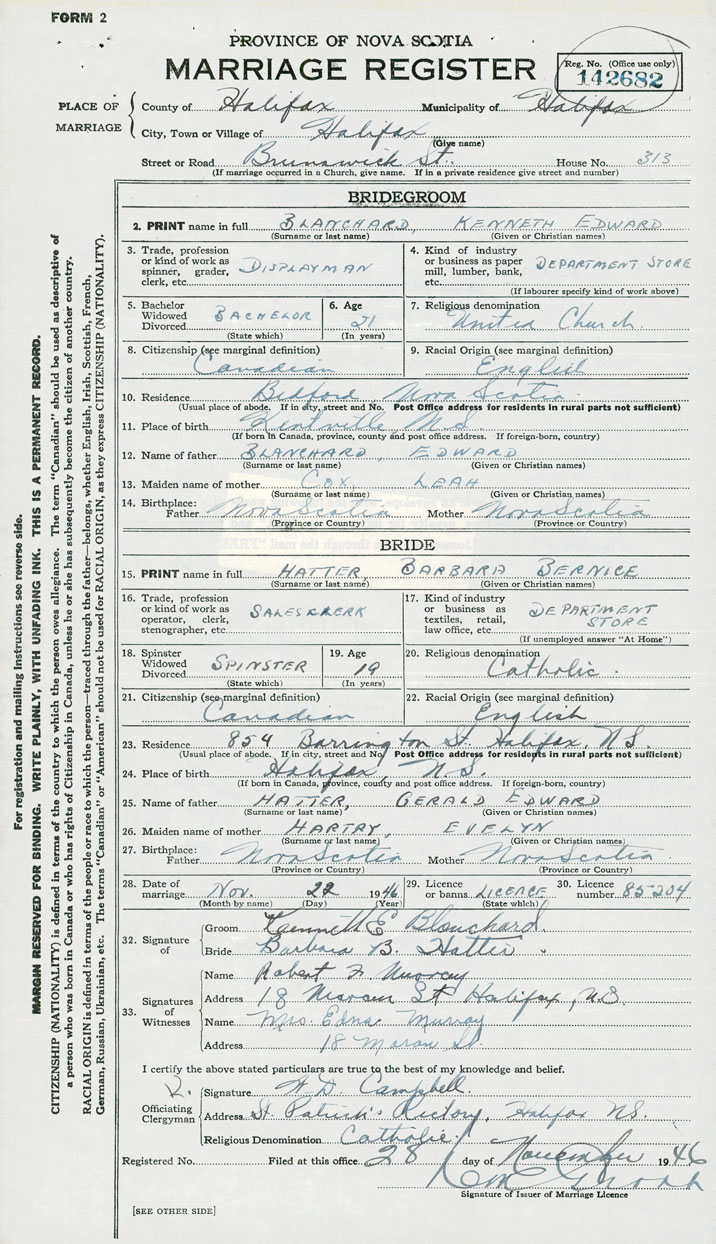 FORM 2
PROVINCE OF NOVA SCOTIA
MARRIAGE REGISTER
Reg. No. (Office use only)
142682
PLACE OF MARRIAGE
County of Halifax Municipality of Halifax
City, Town or Village of Halifax
(Give name)
Street or Road Brunswick St. House No. 313
(If marriage occurred in a Church, give name. If in a private residence give street and number)
BRIDEGROOM
2. PRINT name in full BLANCHARD, KENNETH EDWARD
(Surname or last name) (Given or Christian names)
3. Trade, profession or kind of work as spinner, grader, clerk, etc. DISPLAYMAN
4. Kind of industry or business as paper mill, lumber, bank, etc. DEPARTMENT STORE
(If labourer specify kind of work above)
5. Bachelor Widowed Divorced BACHELOR
(State which)
6. Age 21
(In years)
7. Religious denomination United Church
8. Citizenship (see marginal definition) Canadian
9. Racial Origin (see marginal definition) English
10. Residence Bedford, Nova Scotia
(Usual place of abode. If in city, street and No. Post Office address for residents in rural parts not sufficient)
11. Place of birth Kentville N.S.
(If born in Canada, province, county and post office address. If foreign-born, country)
12. Name of father BLANCHARD, EDWARD
(Surname or last name) (Given or Christian names)
13. Maiden name of mother COX, LEAH
(Surname or last name) (Given or Christian names)
14. Birthplace: Father Nova Scotia Mother Nova Scotia
(Province or Country) (Province or Country)
BRIDE
15. PRINT name in full HATTER, BARBARA BERNICE
(Surname or last name) (Given or Christian names)
16. Trade, profession or kind of work as operator, clerk, stenographer, etc. SALESCLERK
17. Kind of industry or business as textiles, retail, law office, etc. DEPARTMENT STORE
(If unemployed answer "At Home")
18. Spinster Widowed Divorced SPINSTER
(State which)
19. Age 19
(In years)
20. Religious denomination Catholic
21. Citizenship (see marginal definition) Canadian
22. Racial Origin (see marginal definition) English
23. Residence 854 Barrington St. Halifax, N.S.
(Usual place of abode. If in city, street and No. Post Office address for residents in rural parts not sufficient)
24. Place of birth Halifax, N.S.
(If born in Canada, province, county and post office address. If foreign-born, country)
25. Name of father HATTER, GERALD EDWARD
(Surname or last name) (Given or Christian names)
26. Maiden name of mother HARTRY, EVELYN
(Surname or last name) (Given or Christian names)
27. Birthplace: Father Nova Scotia Mother Nova Scotia
(Province or Country) (Province or Country)
28. Date of marriage Nov. 22 1946
(Month by name) (Day) (Year)
29. Licence or banns LICENCE
(State which)
30. Licence number 85-204
32. Signature of
Groom Kenneth E Blanchard
Bride Barbara B. Hatter
33. Signatures of Witnesses
Name Robert F Murray
Address 18 St Halifax, N.S.
Name Mrs. Edna Murray
Address 18 Moran St.
I certify the above stated particulars are true to the best of my knowledge and belief.
Officiating Clergyman
Signature Campbell
Address St. Patrick's Rectory, Halifax N.S.
Religious Denomination Catholic
Registered No. Filed at this office 28 day of November 1946
Signature of Issuer of Marriage Licence
[SEE OTHER SIDE]
For registration and mailing instructions see reverse side.
MARGIN RESERVED FOR BINDING. WRITE PLAINLY, WITH UNFADING INK. THIS IS A PERMANENT RECORD.
CITIZENSHIP (NATIONALITY) is defined in terms of the country to which the person owes allegiance. The term "Canadian" should be used as descriptive of
a person who was born in Canada or who has rights of Citizenship in Canada, unless he or she has subsequently become the citizen of another country.
RACIAL ORIGIN is defined in terms of the people or race to which the person—traced through the father—belongs, whether English, Irish, Scottish, French,
German, Russian, Ukrainian, etc. The terms "Canadian" or "American" should not be used for RACIAL ORIGIN, as they express CITIZENSHIP (NATIONALITY).